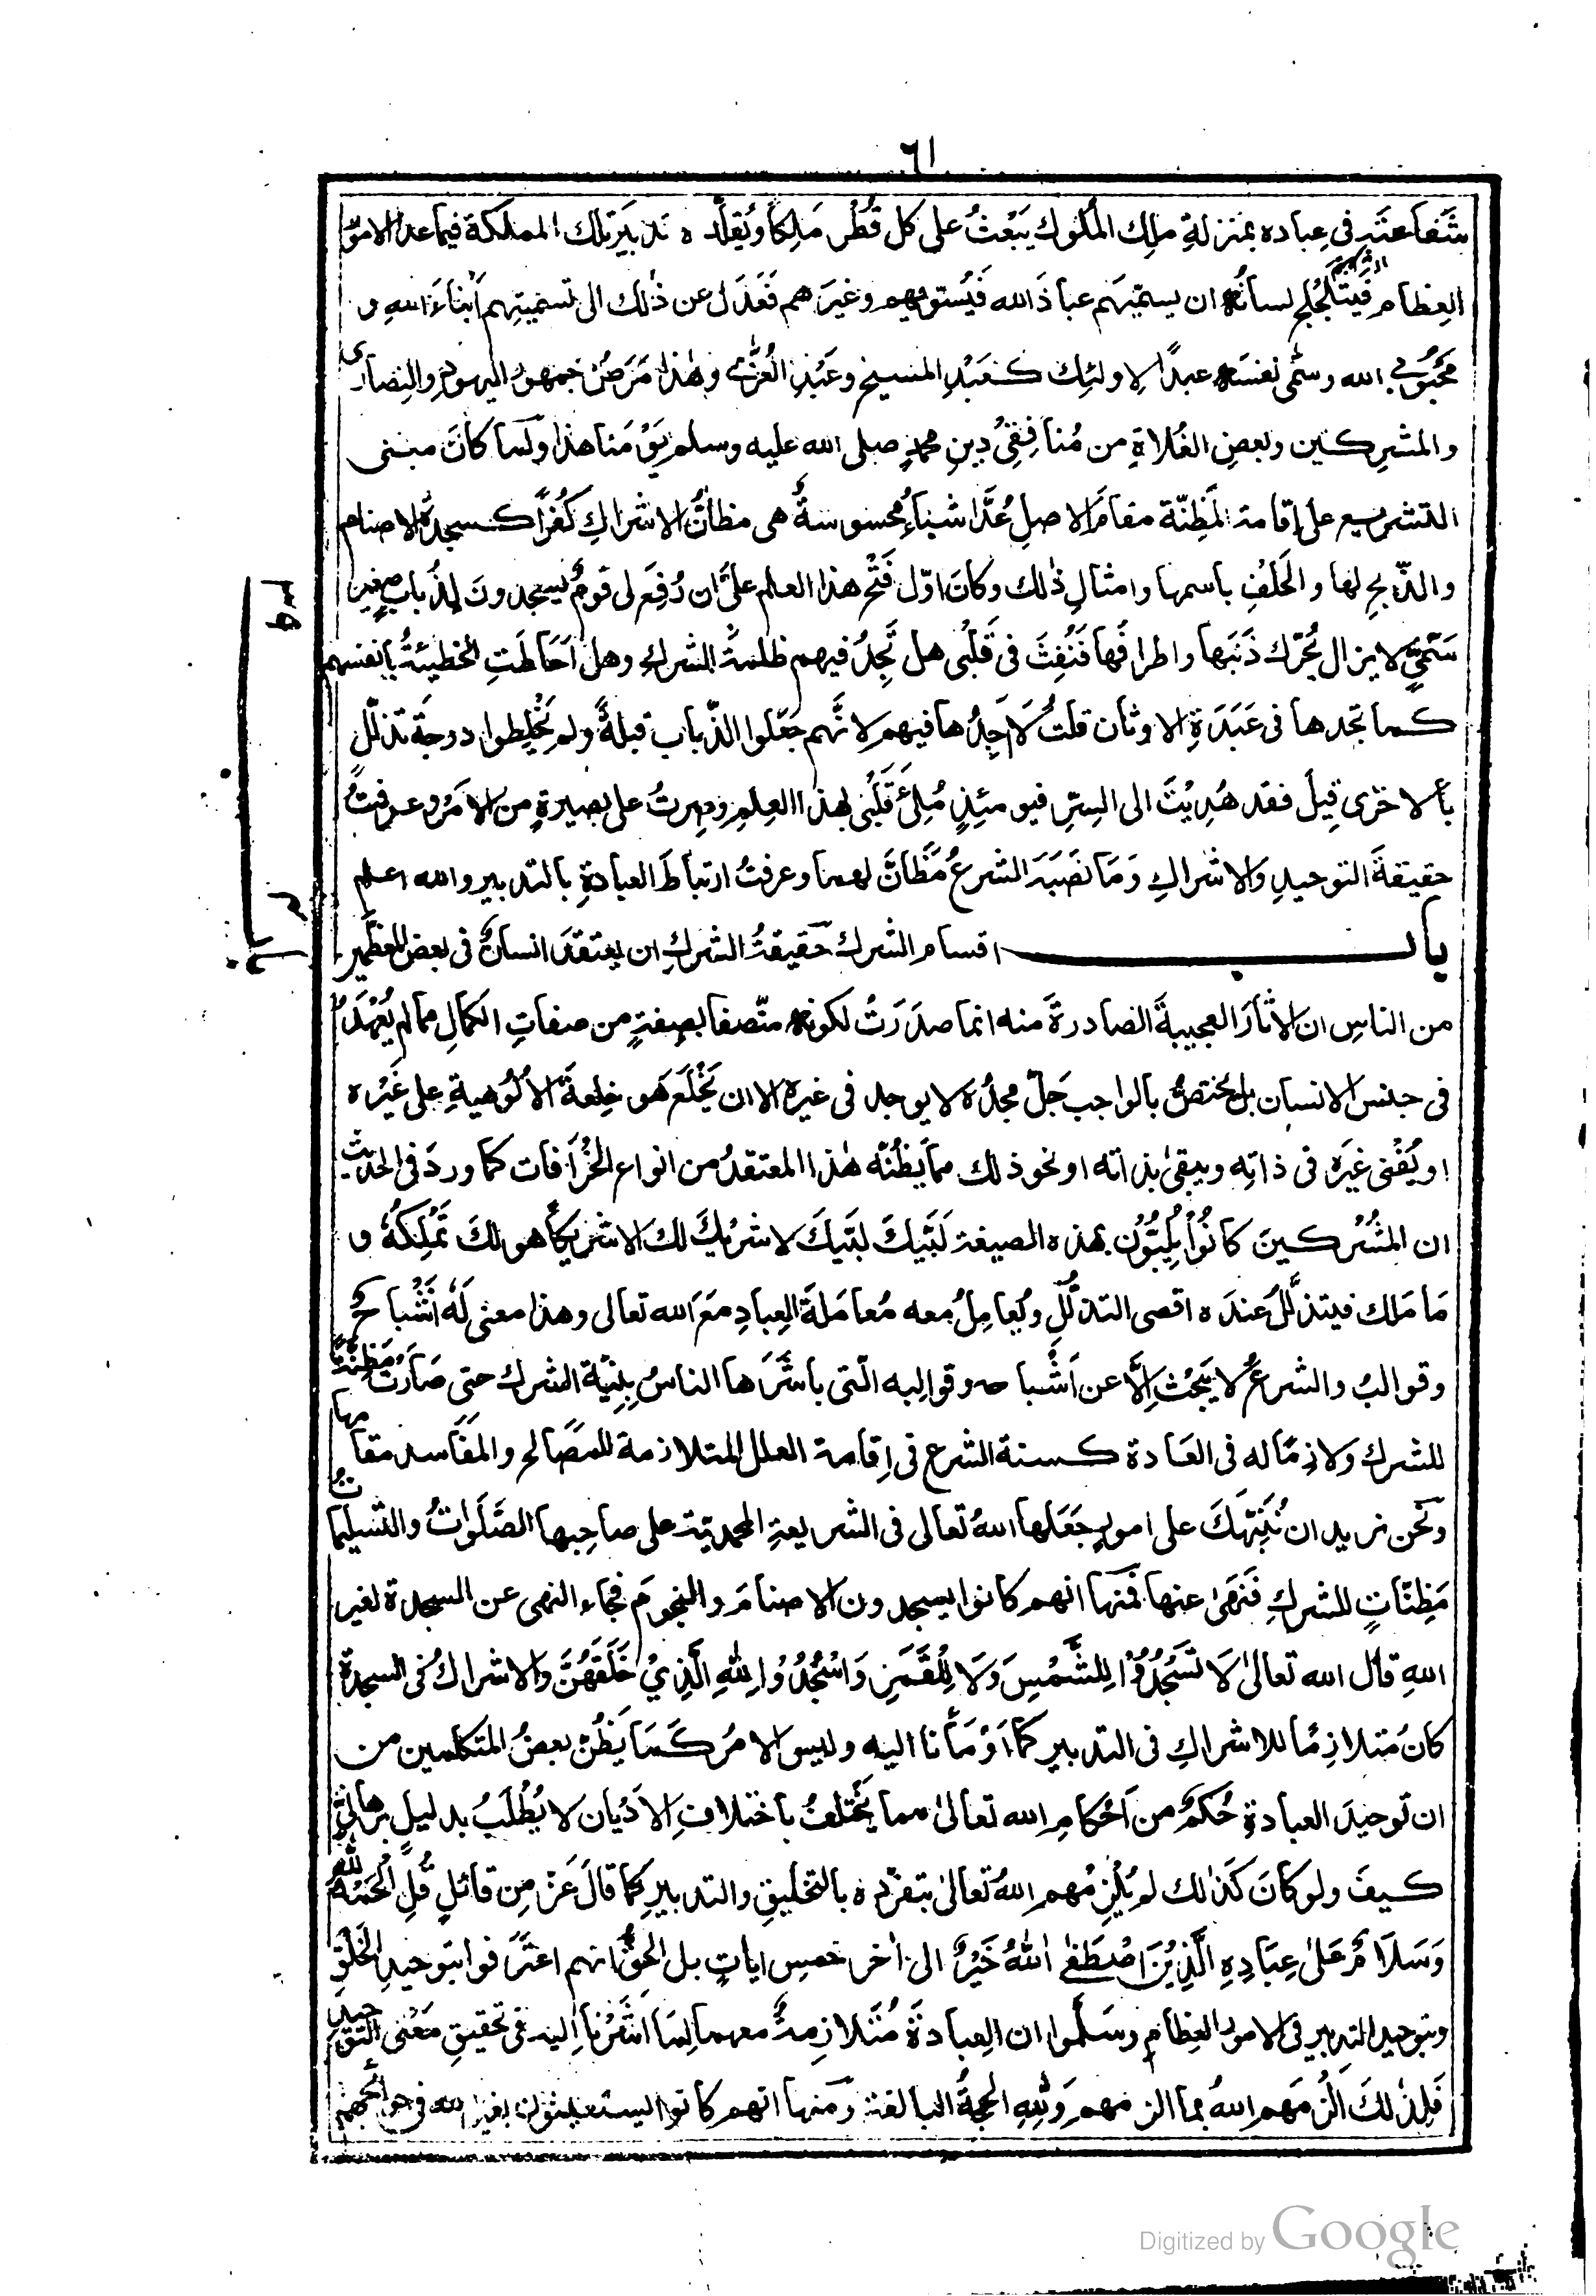 ٦١
شفاعتهم فى عباده بمنزلةِ ملِك المُلوك يَبْعَثُ على كل قُطْر مَلِكًا ويُقلّده تدبيرَ تلك المملكة فيما عدا الامور
العِظام فيَتَلَجْلَج لسانُه ان يسميَهم عبادَ الله فيُسوّيهم وغيرَهم فَعَدَلَ عن ذٰلك الى تسميتِهم اَبْنَاءَ اللهِ و
مَحْبُوْبى الله وسمّى نفسَه عبدًا لاولئِك كعَبْدِ المسيحِ وعَبْدِ العُزّٰى وهٰذا مَرَضُ جمهورِ اليهودِ والنصارى
والمشرِكين وبعضِ الغُلاةِ من مُنافِقِىْ دِينِ محمدٍ صلى الله عليه وسلم يَوْمَنا هذا ولما كانَ مبنى
التشريع على اِقامة المَظِنّة مقامَ الاصلِ عُدَّ اشياءُ محسوسةٌ هى مظانُّ الاشراكِ كُفْرًا كسجدةِ الاصنام
والذّبحِ لها والحَلْفِ باسمها وامثالِ ذٰلك وكانَ اوّل فَتْحِ هذا العلم علىَّ ان رُفِعَ لى قومٌ يسجدونَ لِذُبابٍ صغيرٍ
سَمّىٍّ لا يزال يُحرّك ذَنَبَها واطرافَها فنُفِثَ فى قَلْبى هل تَجِدُ فيهم ظلمةَ الشركِ وهل اَحَاطَتِ الخطيئةُ بانفسهم
كما تجدها فى عَبَدَةِ الاوثان قلتُ لَا اَجِدُها فيهم لانَّهم جَعَلوا الذّباب قبلةً ولم يَخْلِطوا درجةَ تذلّلٍ
بالاخرٰى قِيلَ فقد هُدِيْتَ الى السِّرِّ فيومئِذٍ مُلِئَ قَلْبى بهذا العِلمِ وصِرتُ على بصيرةٍ من الامْرِ وعرفتُ
حقيقةَ التوحيدِ والاشراكِ وَمَا نَصَبَه الشرعُ مَظَانَّ لهما وعرفتُ ارتباطَ العبادةِ بالتدبير والله اعلم
باب اقسام الشرك حقيقةُ الشركِ ان يعتقدَ انسانٌ فى بعض المعظَّمين
من الناسِ ان الاٰثارَ العجيبةَ الصادرةَ منه انما صدَرَتْ لكونِه متّصفا بصِفةٍ من صفاتِ الكمالِ مما لم يُعْهَدْ
فى جنس الانسان بل يختصُّ بالواجب جَلّ مجدُه لا يوجد فى غيره الا ان يَخْلَعَ هو خِلعةَ الاُلُوْهيةِ على غَيْرِه
او يُفْنىَ غيرَه فى ذاتِه ويبقىٰ بذاته او نحو ذلك مما يظُنّه هٰذا المعتقدُ من انواع الخُرافات كما وردَ فى الحديث
ان المشركينَ كانُوْا يُلبُّوْن بهذه الصيغة لَبَّيكَ لبَّيكَ لا شريْكَ لك الا شريكًا هو لكَ تَمْلِكُهٗ و
مَا مَلَك فيتذلَّلُ عندَه اقصى التذلُّلِ ويُعامِلُ معه مُعامَلةَ العِبادِ مَعَ الله تعالى وهذا معنى لَهٗ اَشْباحٌ
وقوالبُ والشرعُ لا يَبْحَثُ اِلَّا عن اَشْباحه وقوالِبه الّتى باشَرَها الناسُ بِنِيّة الشرك حتى صَارَتْ مَظِنَّةً
للشرك ولازمًا له فى العَادة كسنة الشرع فى اِقامة العلل المتلازمة للمصَالحِ والمَفاسد مقامها
ونَحن نريد ان نُنَبِّهَكَ على امورٍ جَعَلَها اللهُ تعالى فى الشريعةِ المحمديّةِ على صاحِبها الصَّلَوَاتُ والتسليماتُ
مَظِنّاتٍ للشركِ فَنَهىٰ عنها فَمنها انهم كانوا يسجدون الاصنامَ والنجومَ فجاء النهى عن السجدة لغير
اللهِ قال الله تعالىٰ لَا تَسْجُدُوْا لِلشَّمْسِ وَلَا لِلْقَمَرِ وَاسْجُدُوْا لِلّٰهِ الَّذِيْ خَلَقَهُنَّ والاشراكُ فى السجدة
كانَ مُتلازِمًا للاشراكِ فى التدبير كما اَوْمَأْنا اليه وليس الامرُ كَمَا يَظُنُّ بعضُ المتكلمين من
ان توحيدَ العبادةِ حُكمٌ من اَحْكامِ الله تعالىٰ مما يَخْتلِفُ باختلافِ الاَدْيان لا يُطْلَبُ بدليلٍ برهانىٍّ
كيفَ ولو كانَ كَذٰلك لم يُلزِمْهم اللهُ تعالىٰ بتفرّدِه بالتخليقِ والتدبيرِ كما قالَ عَزّ مِن قائلٍ قُلِ الْحَمْدُ لِلّٰهِ
وَسَلَامٌ عَلىٰ عِبَادِهِ الَّذِيْنَ اصْطَفىٰ اٰللّٰهُ خَيْرٌ الىٰ اٰخر خمسِ اياتٍ بل الحقُّ انهم اعترَفوا بتوحيدِ الخَلْقِ
وبتوحيد التدبير فى الامور العِظام وسَلَّموا ان العِبادةَ مُتلازمةٌ معهما لِمَا اشَرْنا اليه فى تحقيقِ مَعْنى التوحيد
فَلِذٰلكَ اَلْزمَهم اللهُ بما الزمهم وَلِلّٰهِ الحجةُ البالغة ومنها انهم كانوا يستعينون بغير الله فى حوائجهم